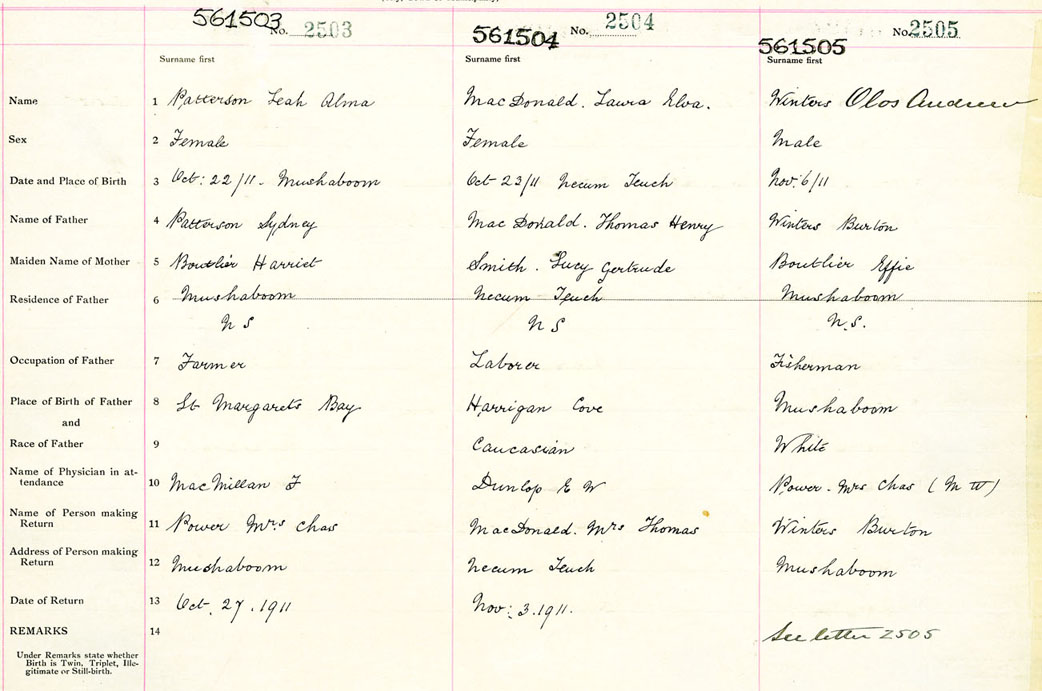 561503 No. 2503 561504 No. 2504 561505 No. 2505
Surname first Surname first Surname first
Name 1 Patterson Leah Alma MacDonald. Laura Elva. Winters Olos Andrew
Sex 2 Female Female Male
Date and Place of Birth 3 Oct: 22/11 - Mushaboom Oct 23/11 Necum Teuch Nov: 6/11
Name of Father 4 Patterson Sydney Mac Donald. Thomas Henry Winters Burton
Maiden Name of Mother 5 Boutlier Harriet Smith. Lucy Gertrude Boutlier Effie
Residence of Father 6 Mushaboom Necum Teuch Mushaboom
N S N S N.S.
Occupation of Father 7 Farmer Laborer Fisherman
Place of Birth of Father 8 St Margarets Bay Harrigan Cove Mushaboom
and
Race of Father 9 Caucasian White
Name of Physician in at-
tendance 10 MacMillan F Dunlop E W Power - Mrs Chas (M W)
Name of Person making
Return 11 Power Mrs Chas MacDonald. Mrs Thomas Winters Burton
Address of Person making
Return 12 Mushaboom Necum Teuch Mushaboom
Date of Return 13 Oct. 27. 1911 Nov: 3. 1911.
REMARKS 14 See letter 2505
Under Remarks state whether
Birth is Twin, Triplet, Ille-
gitimate or Still-birth.